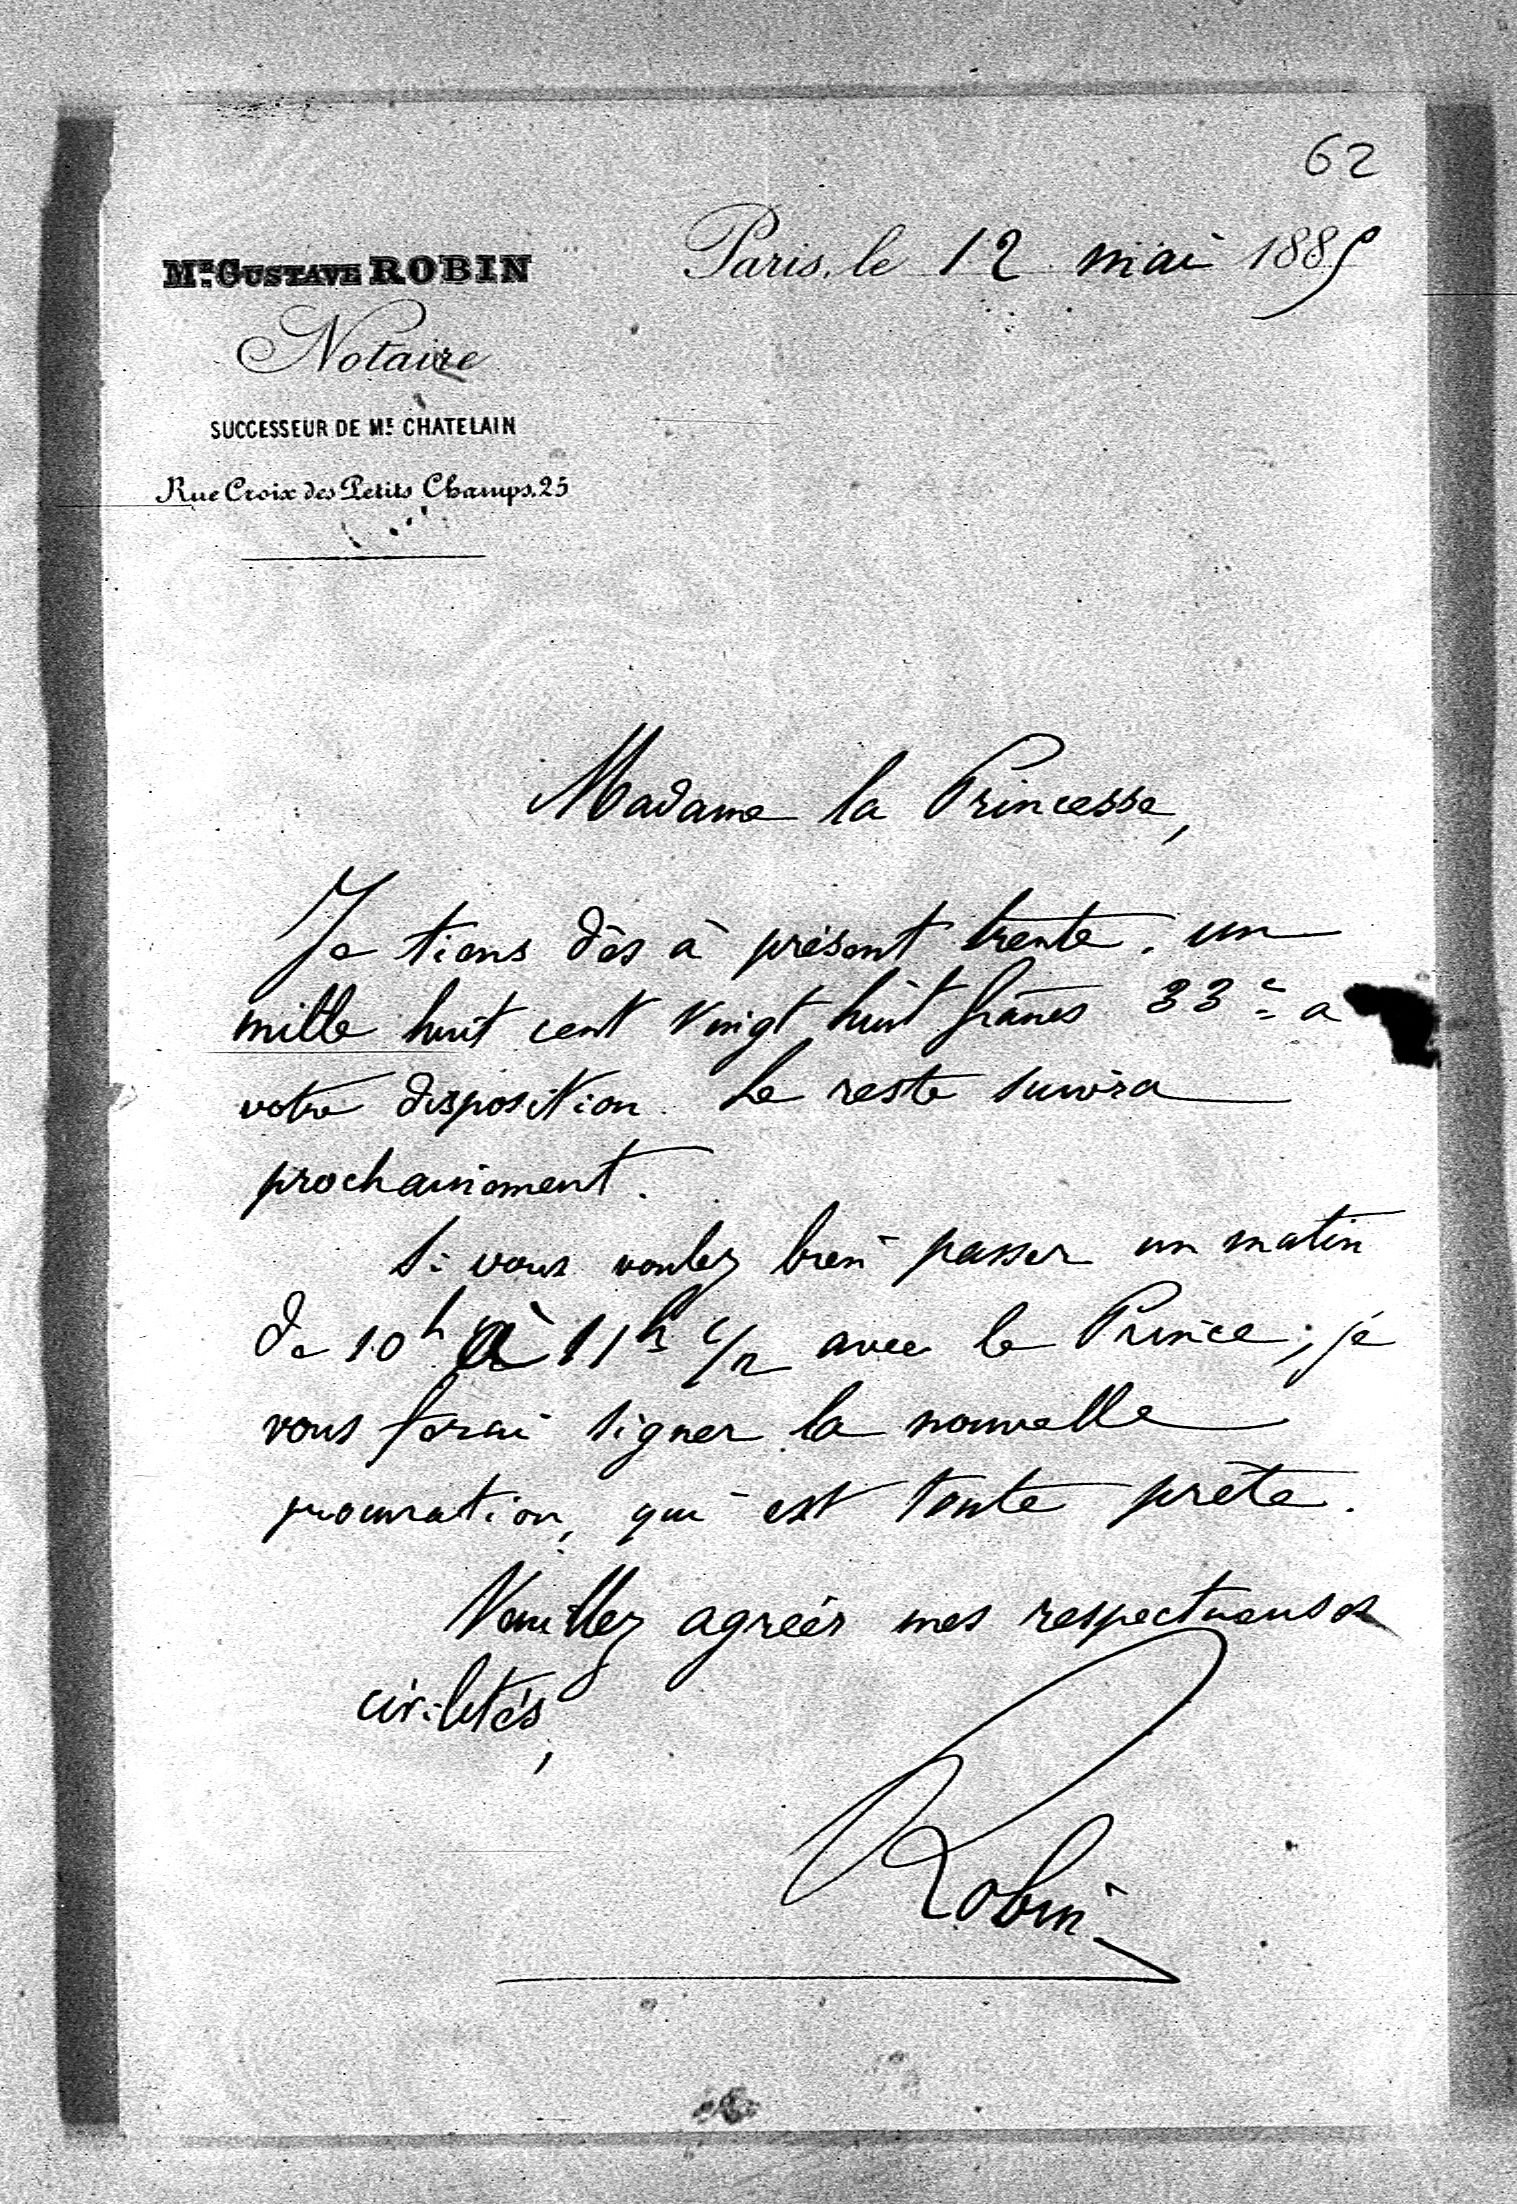 62
Mᵉ GUSTAVE ROBIN
Notaire
SUCCESSEUR DE Mᴱ CHATELAIN
Rue Croix des Petits Champs, 25
Paris, le 12 mai 1885
Madame la Princesse,
Je tiens dès à présent trente. un
mille huit cent vingt huit francs 33ᶜ a
votre disposition. Le reste suivra
prochainement.
Si vous voulez bien passer un matin
de 10ʰ à 11ʰ 1/2 avec le Prince, je
vous ferai signer la nouvelle
procuration, qui est toute prête.
Veuillez agréér mes respectueuses
civilités,
Robin